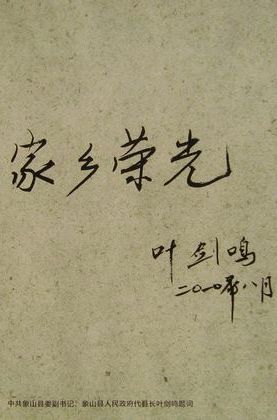 家乡荣光
叶剑鸣
二〇一〇年八月
中共象山县委副书记、象山县人民政府代县长叶剑鸣题词